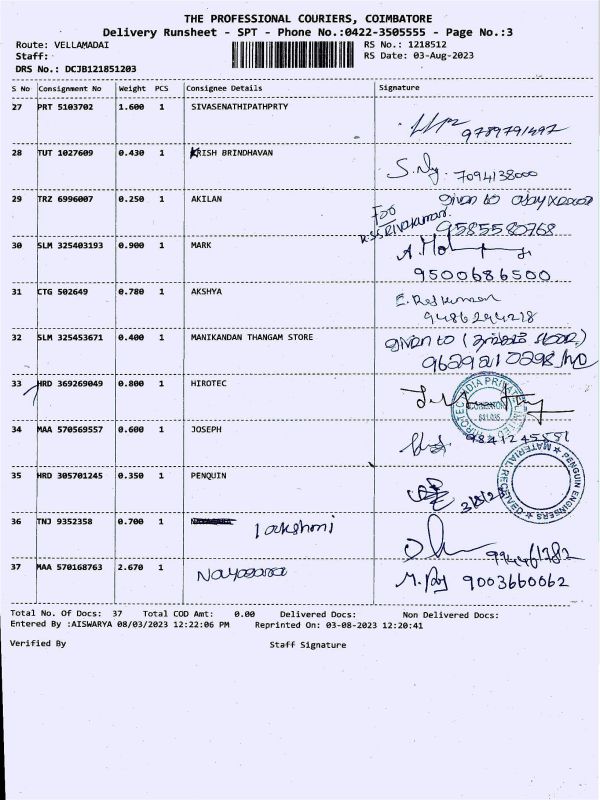 THE PROFESSIONAL COURIERS, COIMBATORE
Delivery Runsheet - SPT - Phone No.:0422-3505555 - Page No.:3
Route: VELLAMADAI RS No.: 1218512
Staff: RS Date: 03-Aug-2023
DRS No.: DCJB121851203
S No Consignment No Weight PCS Consignee Details Signature
27 PRT 5103702 1.600 1 SIVASENATHIPATHPRTY
9789791497
28 TUT 1027609 0.430 1 KRISH BRINDHAVAN
7094138000
29 TRZ 6996007 0.250 1 AKILAN given to
For
9585580768
30 SLM 325403193 0.900 1 MARK
9500686500
31 CTG 502649 0.780 1 AKSHYA
9486294218
32 SLM 325453671 0.400 1 MANIKANDAN THANGAM STORE given to
33 HRD 369269049 0.800 1 HIROTEC
HIROTEC INDIA PRIVATE LIMITED
34 MAA 570569557 0.600 1 JOSEPH 9841245551
35 HRD 305701245 0.350 1 PENQUIN
PENGUIN ENGINEERS MATERIAL RECEIVED
36 TNJ 9352358 0.700 1 lakshmi
37 MAA 570168763 2.670 1 Nayagara
9003660062
Total No. Of Docs: 37 Total COD Amt: 0.00 Delivered Docs: Non Delivered Docs:
Entered By :AISWARYA 08/03/2023 12:22:06 PM Reprinted On: 03-08-2023 12:20:41
Verified By Staff Signature